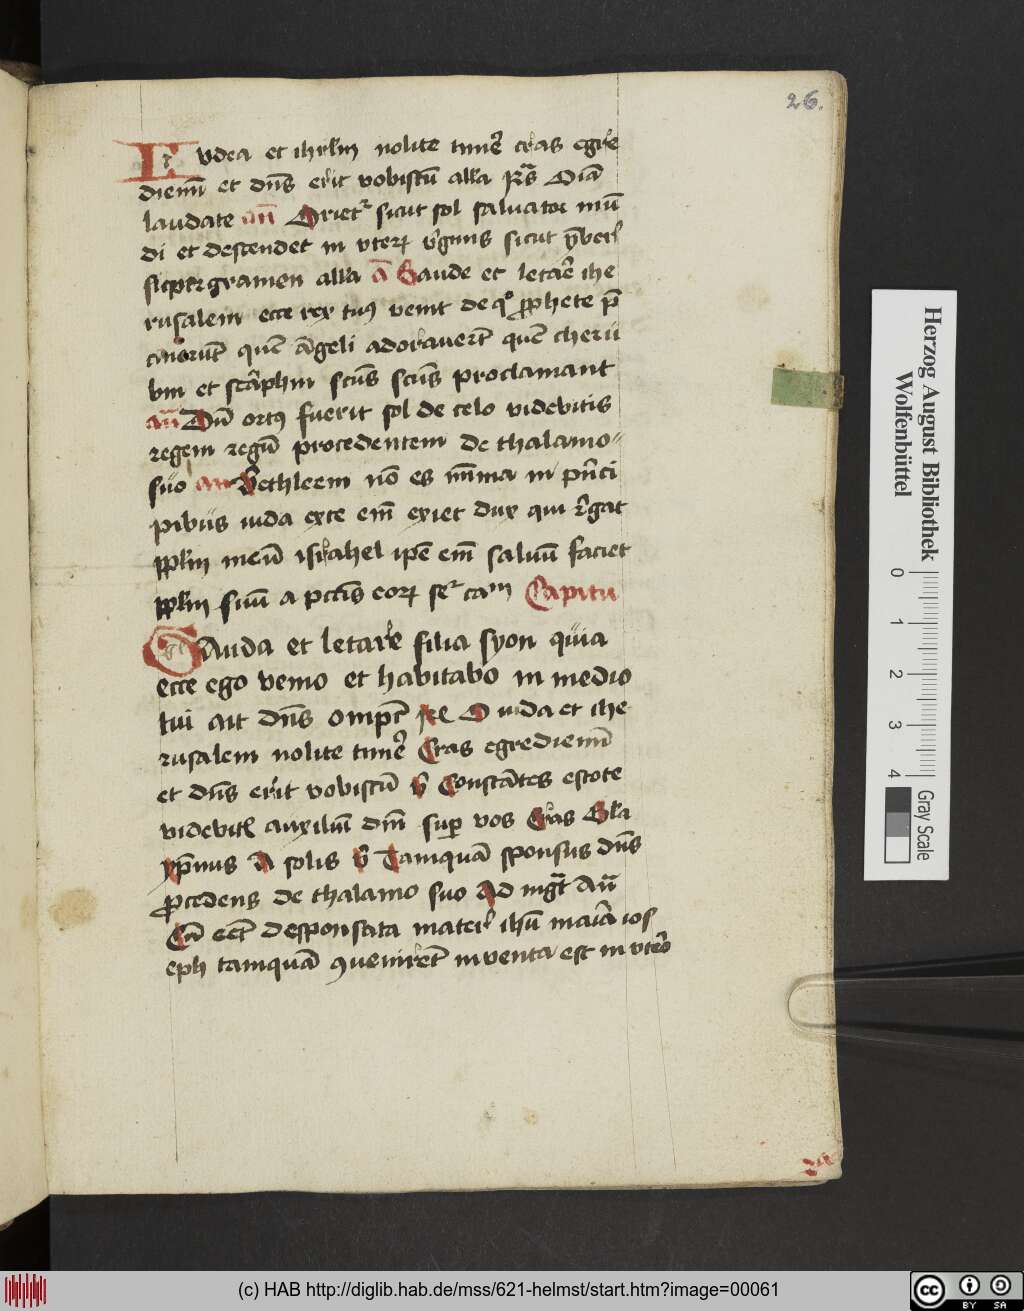 26.
vdea et ihrlm nolite timẽ cras egre
diemi et dñs erit vobiscũ alla Ps Diã
laudate añ Oriet sicut sol saluator mũ
di et descendet in vterꝝ vgĩnis sicut ẏmber
sicper gramen alla ã Gaude et letare ihe
rusalem ecce rex tuꝰ venit de qͦ ꝓphete p̃
cinerũt quẽ ãgeli adorauert quẽ cheru
bin et seraphin scũs scũs proclamant
añ Dũ ortꝰ fuerit sol de celo videbitis
regem regũ procedentem de thalamo
suo an Bethleem nõ es mĩma in pñci
pibus iuda exte em̃ exiet dux qui rgat
pplm meũ israhel ipẽ em̃ saluũ faciet
pplm suũ a pctis eorꝝ Capitu
Gauda et letare filia syon quia
ecce ego venio et habitabo in medio
tui ait dñs ompt̃ Re O iuda et ihe
rusalem nolite timẽ Cras egrediemi
et dñs erit vobiscũ v̾ Constãtes estote
videbitꝭ auxiliũ dñi suꝑ vos Cras Gla
xp̃mus A solis v̾ Tamquã sponsus dñs
ꝓcedens de thalamo suo Ad mgt Añ
Cũ eet desponsata mater ihũ maria ios
eph tamquã ꝯuenirẽt inventa est in vtero
Herzog August Bibliothek
Wolfenbüttel
0 1 2 3 4
Gray Scale
(c) HAB http://diglib.hab.de/mss/621-helmst/start.htm?image=00061
cc BY SA